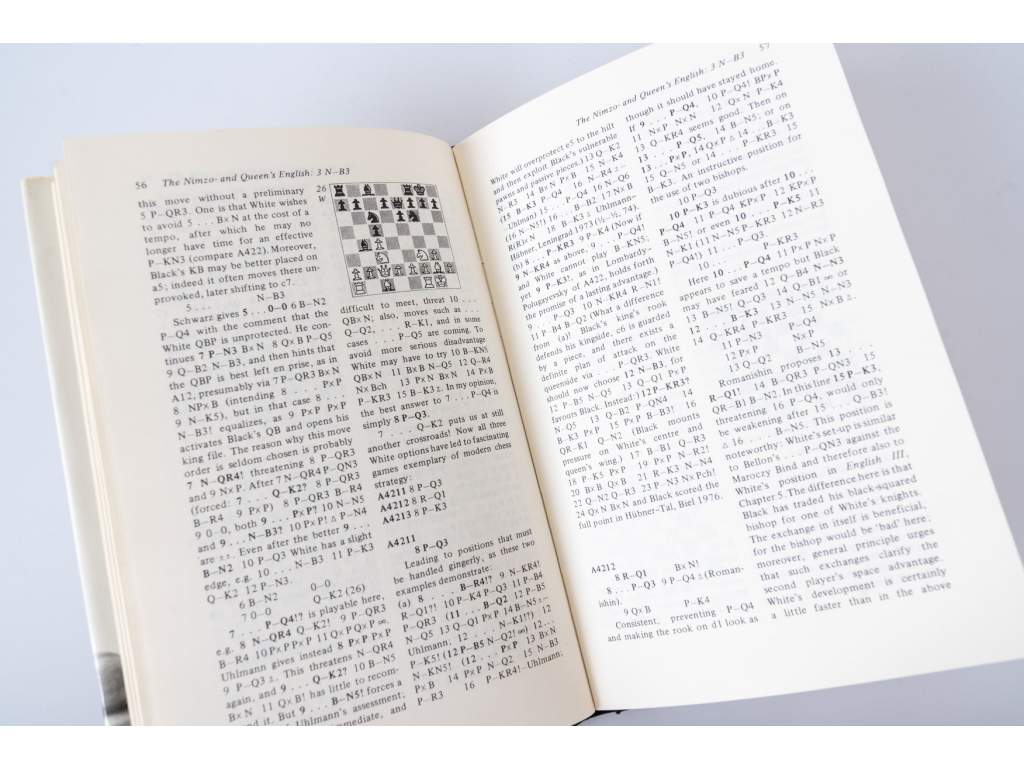 56 The Nimzo- and Queen's English: 3 N–B3
this move without a preliminary
5 P–QR3. One is that White wishes
to avoid 5 . . . B×N at the cost of a
tempo, after which he may no
longer have time for an effective
P–KN3 (compare A422). Moreover,
Black's KB may be better placed on
a5; indeed it often moves there un-
provoked, later shifting to c7.
5 . . . N–B3
Schwarz gives 5 . . . 0–0 6 B–N2
P–Q4 with the comment that the
White QBP is unprotected. He con-
tinues 7 P–N3 B×N 8 Q×B P–Q5
9 Q–B2 N–B3, and then hints that
the QBP is best left en prise, as in
A12, presumably via 7 P–QR3 B×N
8 NP×B (intending 8 . . . P×P
9 N–K5), but in that case 8 . . .
N–B3! equalizes, as 9 P×P P×P
activates Black's QB and opens his
king file. The reason why this move
order is seldom chosen is probably
7 N–QR4! threatening 8 P–QR3
and 9 N×P. After 7 N–QR4 P–QN3
(forced: 7 . . . Q–K2? 8 P–QR3
B–R4 9 P×P) 8 P–QR3 B–R4
9 0–0, both 9 . . . P×P? 10 N×P
and 9 . . . N–B3? 10 P×P! Δ P–N4
are ±±. Even after the better 9 . . .
B–N2 10 P–Q3 White has a slight
edge, e.g. 10 . . . N–B3 11 P–K3
Q–K2 12 P–N3.
6 B–N2 0–0
7 0–0 Q–K2 (26)
7 . . . P–Q4!? is playable here,
e.g. 8 N–QR4 Q–K2! 9 P–QR3
B–R4 10 P×P P×P 11 Q×P Q×P ∞.
Uhlmann gives instead 8 P×P P×P
9 P–Q3 ±. This threatens N–QR4
again, and 9 . . . Q–K2? 10 B–N5
B×N 11 Q×B! has little to recom-
d it. But 9 . . . B–N5! forces a
Uhlmann's assessment;
mediate, and
26
W
difficult to meet, threat 10 . . .
QB×N; also, moves such as . . .
Q–Q2, . . . R–K1, and in some
cases . . . P–Q5 are coming. To
avoid more serious disadvantage
White may have to try 10 B–KN5
QB×N 11 B×B N–Q5 12 Q–R4
N×Bch 13 P×N B×N 14 P×B
P–KR3 15 B–K3 ±. In my opinion,
the best answer to 7 . . . P–Q4 is
simply 8 P–Q3.
7 . . . Q–K2 puts us at still
another crossroads! Now all three
White options have led to fascinating
games exemplary of modern chess
strategy:
A4211 8 P–Q3
A4212 8 R–Q1
A4213 8 P–K3
A4211
8 P–Q3
Leading to positions that must
be handled gingerly, as these two
examples demonstrate:
(a) 8 . . . B–R4!? 9 N–KR4!
R–Q1?! 10 P–K4 P–Q3 11 P–B4
P–QR3 (11 . . . B–Q2 12 P–B5
N–Q5 13 Q–Q1 P×P 14 B–N5 ±–
Uhlmann, 12 . . . N–K1!?) 12
P–K5! (12 P–B5 N–Q2! ∞) 12 . . .
N–KN5! (12 . . . P×P 13 B×N
P×B 14 P×P N–Q2 15 N–B3
P–R3 16 P–KR4!–Uhlmann;
The Nimzo- and Queen's English: 3 N–B3 57
White will overprotect e5 to the hilt
and then exploit Black's vulnerable
pawns and passive pieces.) 13 Q–K2
N–R3 14 B×N P×B 15 N–K4
(15 B–K3 P–Q4, 16 N–R4 ±–
Uhlman) 15 . . . P–Q4 16 N–Q6
(16 N–N5!) 16 . . . B–B2 17 N×B
R(R1)×N 18 P–B5 ∞ Uhlmann–
Hübner, Leningrad 1973 (½–½, 74).
(b) 8 . . . P–KR3 9 P–K4 (Now if
9 N–KR4 as above, 9 . . . P–Q4!
and White cannot play B–KN5;
yet 9 P–K3!, as in Lombardy–
Polugayevsky of A422, holds forth
the promise of a lasting advantage.)
9 . . . P–Q3 10 N–KR4 R–N1!
11 P–B4 B–Q2 (What a difference
from (a)! Black's king's rook
defends his kingside, c6 is guarded
by a piece, and there exists a
definite plan of attack on the
queenside via . . . P–QR3. White
should now choose 12 N–B3, for
12 P–B5 N–Q5 13 Q–Q1 P×P
favours Black. Instead:) 12 P–KR3?
N–Q5 13 Q–B2 P–QN4 14
B–K3 P×P 15 P×P B–B3! 16
QR–K1 Q–N2 (Black mounts
pressure on White's centre and
queen's wing.) 17 B–B1 Q–R3
18 P–K5 P×P 19 P×P N–R2!
20 B×B Q×B 21 R–K3 N–N4
22 Q–N2 Q–R3 23 P–N3 N×Pch!
24 Q×N B×N and Black scored the
full point in Hübner–Tal, Biel 1976.
A4212
8 R–Q1 B×N!
8 . . . P–Q3 9 P–Q4 ± (Roman-
ishin).
9 Q×B P–K4
Consistent, preventing P–Q4
and making the rook on d1 look as
though it should have stayed home.
If 9 . . . P–Q4, 10 P–Q4! BP×P
11 N×P N×N 12 Q×N P–K4
13 Q–KR4 seems good. Then on
13 . . . P–Q5, 14 B–N5; or on
13 . . . P×P, 14 Q×P Δ 14 . . . B–K3
15 Q–N5 or 14 . . . P–KR3 15
B–K3. An instructive position for
the use of two bishops.
10 P–Q3
10 P–K3 is dubious after 10 . . .
P–Q4 11 P–Q4 KP×P 12 KP×P
B–N5! or even 10 . . . P–K5
N–K1 (11 N–N5 P–KR3 12 N–R3
P–Q4!) 11 . . . P–Q4.
10 . . . P–KR3
Here 10 . . . P–Q4 11 P×P N×P
appears to save a tempo but Black
may have feared 12 Q–B4 N–N3
13 B–N5! Q–Q3 14 Q–B1 ∞ or
12 . . . B–K3 13 N–N5 N–N3
14 Q–KR4 P–KR3 15 N×B ±.
11 P–N3 P–Q4
12 P×P N×P
13 Q–Q2 B–N5
Romanishin proposes 13 . . .
R–Q1! 14 B–QR3 P–QN3 15
QR–B1 B–N2. In this line 15 P–K3,
threatening 16 P–Q4, would only
be weakening after 15 . . . Q–B3!
Δ 16 . . . B–N5. This position is
similar to Bellon's . . . P–QN3 against the
Maroczy Bind and therefore also to
White's position in English III,
Chapter 5. The difference here is that
Black has traded his black-squared
bishop for one of White's knights.
The exchange in itself is beneficial,
for the bishop would be 'bad' here;
moreover, general principle urges
that such exchanges clarify the
second player's space advantage
White's development is certainly
a little faster than in the above